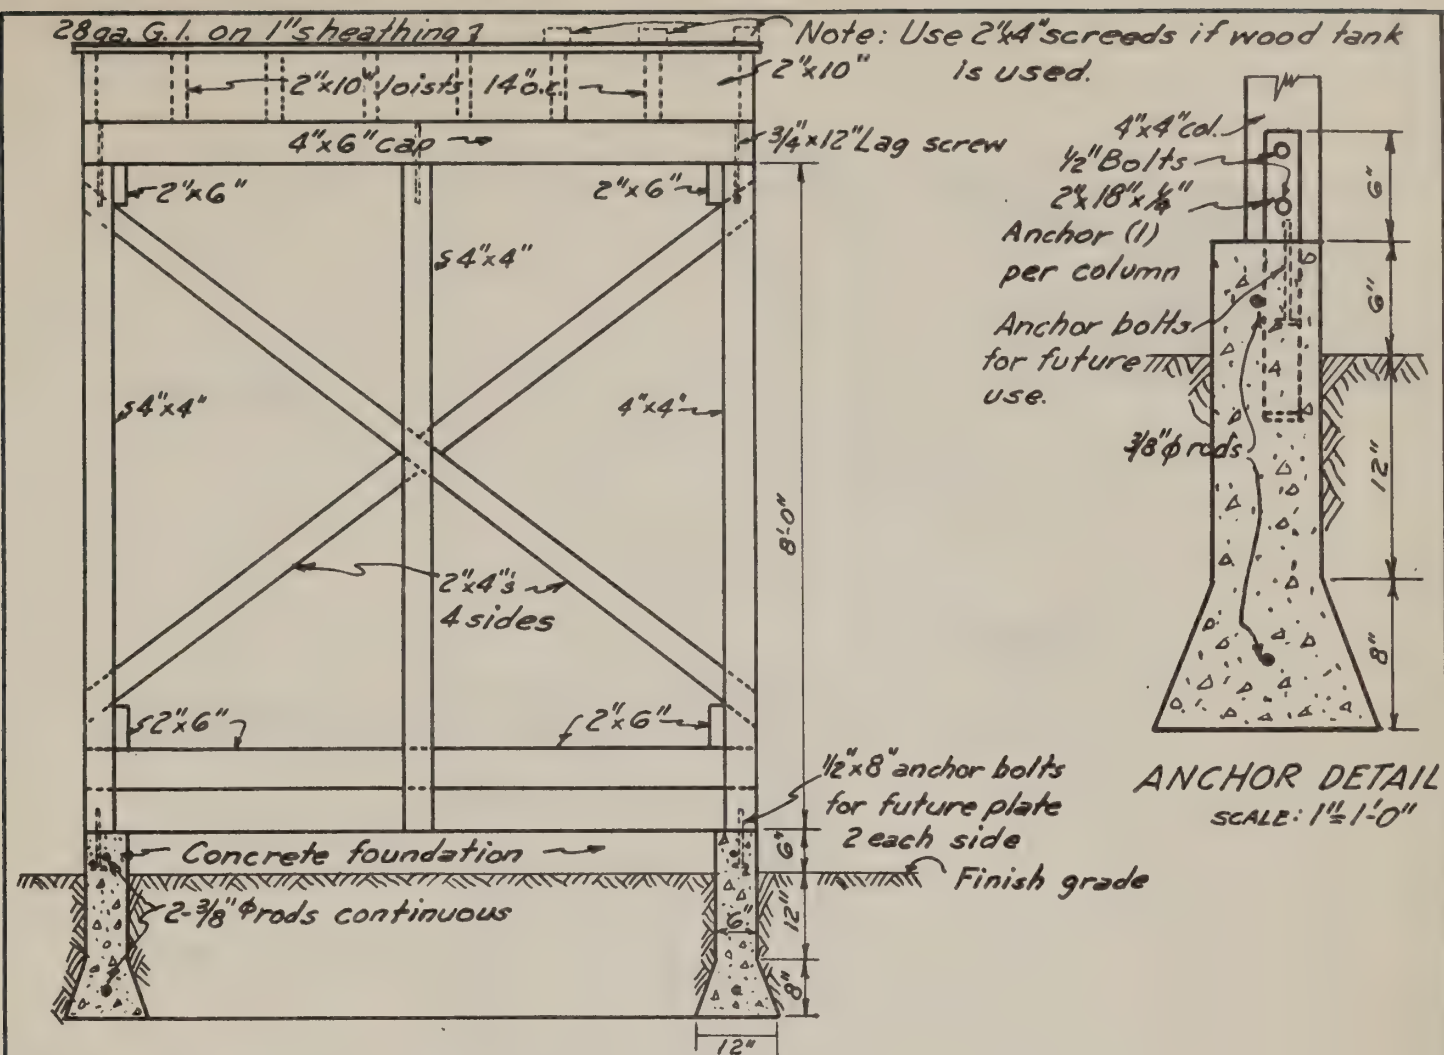 28ga. G.I. on 1" sheathing
Note: Use 2"x4" screeds if wood tank
is used.
2"x10" Joists 14"o.c.
2"x10"
4"x6" cap
3/4"x12" Lag screw
2"x6"
2"x6"
4"x4"
4"x4"
4"x4"
8'-0"
2"x4"s
4 sides
2"x6"
2"x6"
1/2"x8" anchor bolts
for future plate
2 each side
Concrete foundation
6"
Finish grade
2-3/8"φ rods continuous
6"
12"
8"
12"
4"x4" col.
1/2" Bolts
2"x18"x1/4"
Anchor (1)
per column
Anchor bolts
for future
use.
3/8"φ rods
6"
6"
12"
8"
ANCHOR DETAIL
SCALE: 1"=1'-0"